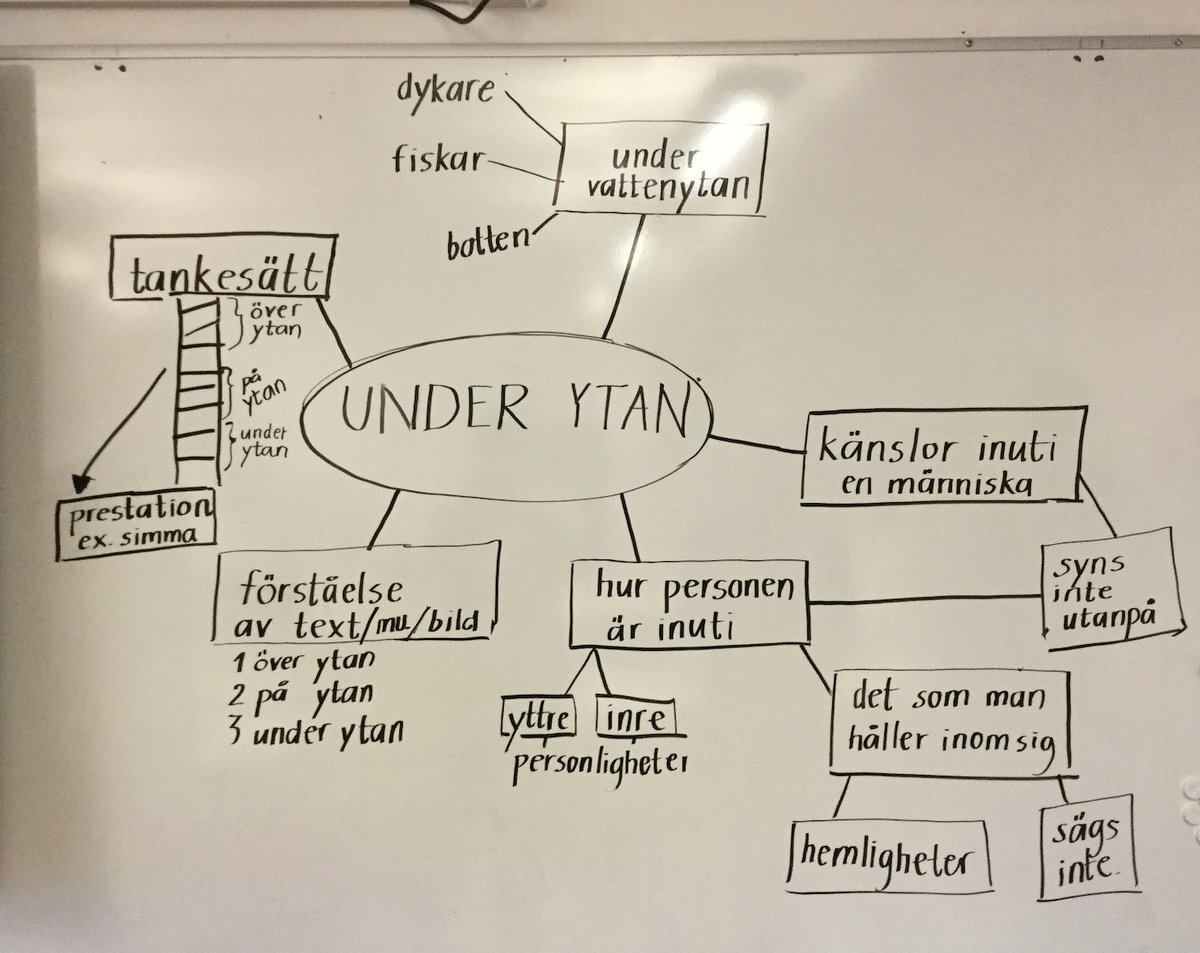 dykare
fiskar
botten
under
vattenytan
tankesätt
över
ytan
på
ytan
under
ytan
prestation
ex. simma
UNDER YTAN
känslor inuti
en människa
syns
inte
utanpå
förståelse
av text/mu/bild
1 över ytan
2 på ytan
3 under ytan
hur personen
är inuti
yttre
inre
personligheter
det som man
håller inom sig
hemligheter
sägs
inte.